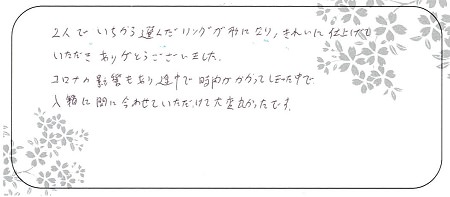 2人で いちから 選んだ リングが 形になり、きれいに 仕上げて
いただき ありがとうございました。
コロナの 影響も あり 途中で 時間が かかって しまった中で
入籍に 間に 合わせて いただけて 大変良かったです。